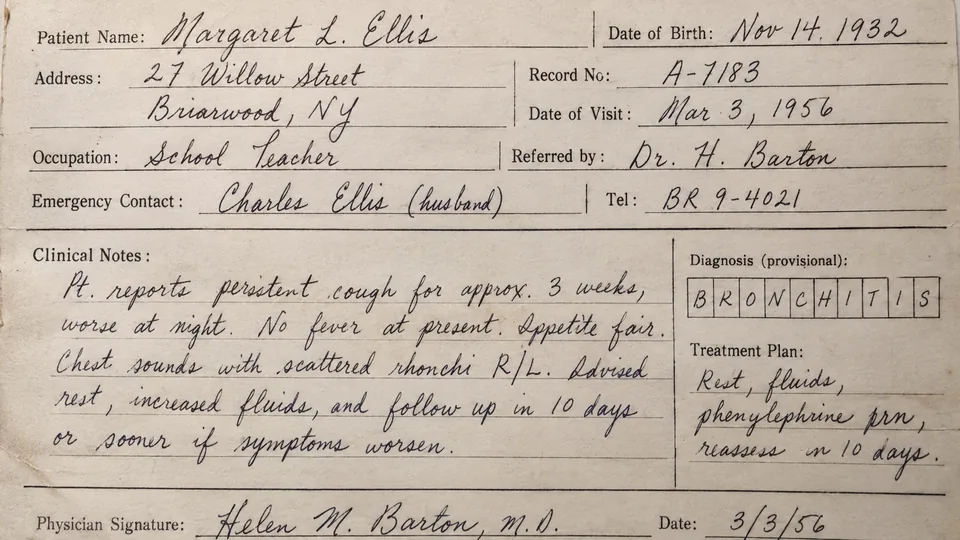 Patient Name: Margaret L. Ellis Date of Birth: Nov 14. 1932
Address: 27 Willow Street Record No: A-7183
Briarwood, NY Date of Visit: Mar 3, 1956
Occupation: School Teacher Referred by: Dr. H. Barton
Emergency Contact: Charles Ellis (husband) Tel: BR 9-4021
Clinical Notes:
Pt. reports persistent cough for approx. 3 weeks,
worse at night. No fever at present. Appetite fair.
Chest sounds with scattered rhonchi R/L. Advised
rest, increased fluids, and follow up in 10 days
or sooner if symptoms worsen.
Diagnosis (provisional):
BRONCHITIS
Treatment Plan:
Rest, fluids,
phenylephrine prn,
reassess in 10 days.
Physician Signature: Helen M. Barton, M.D. Date: 3/3/56